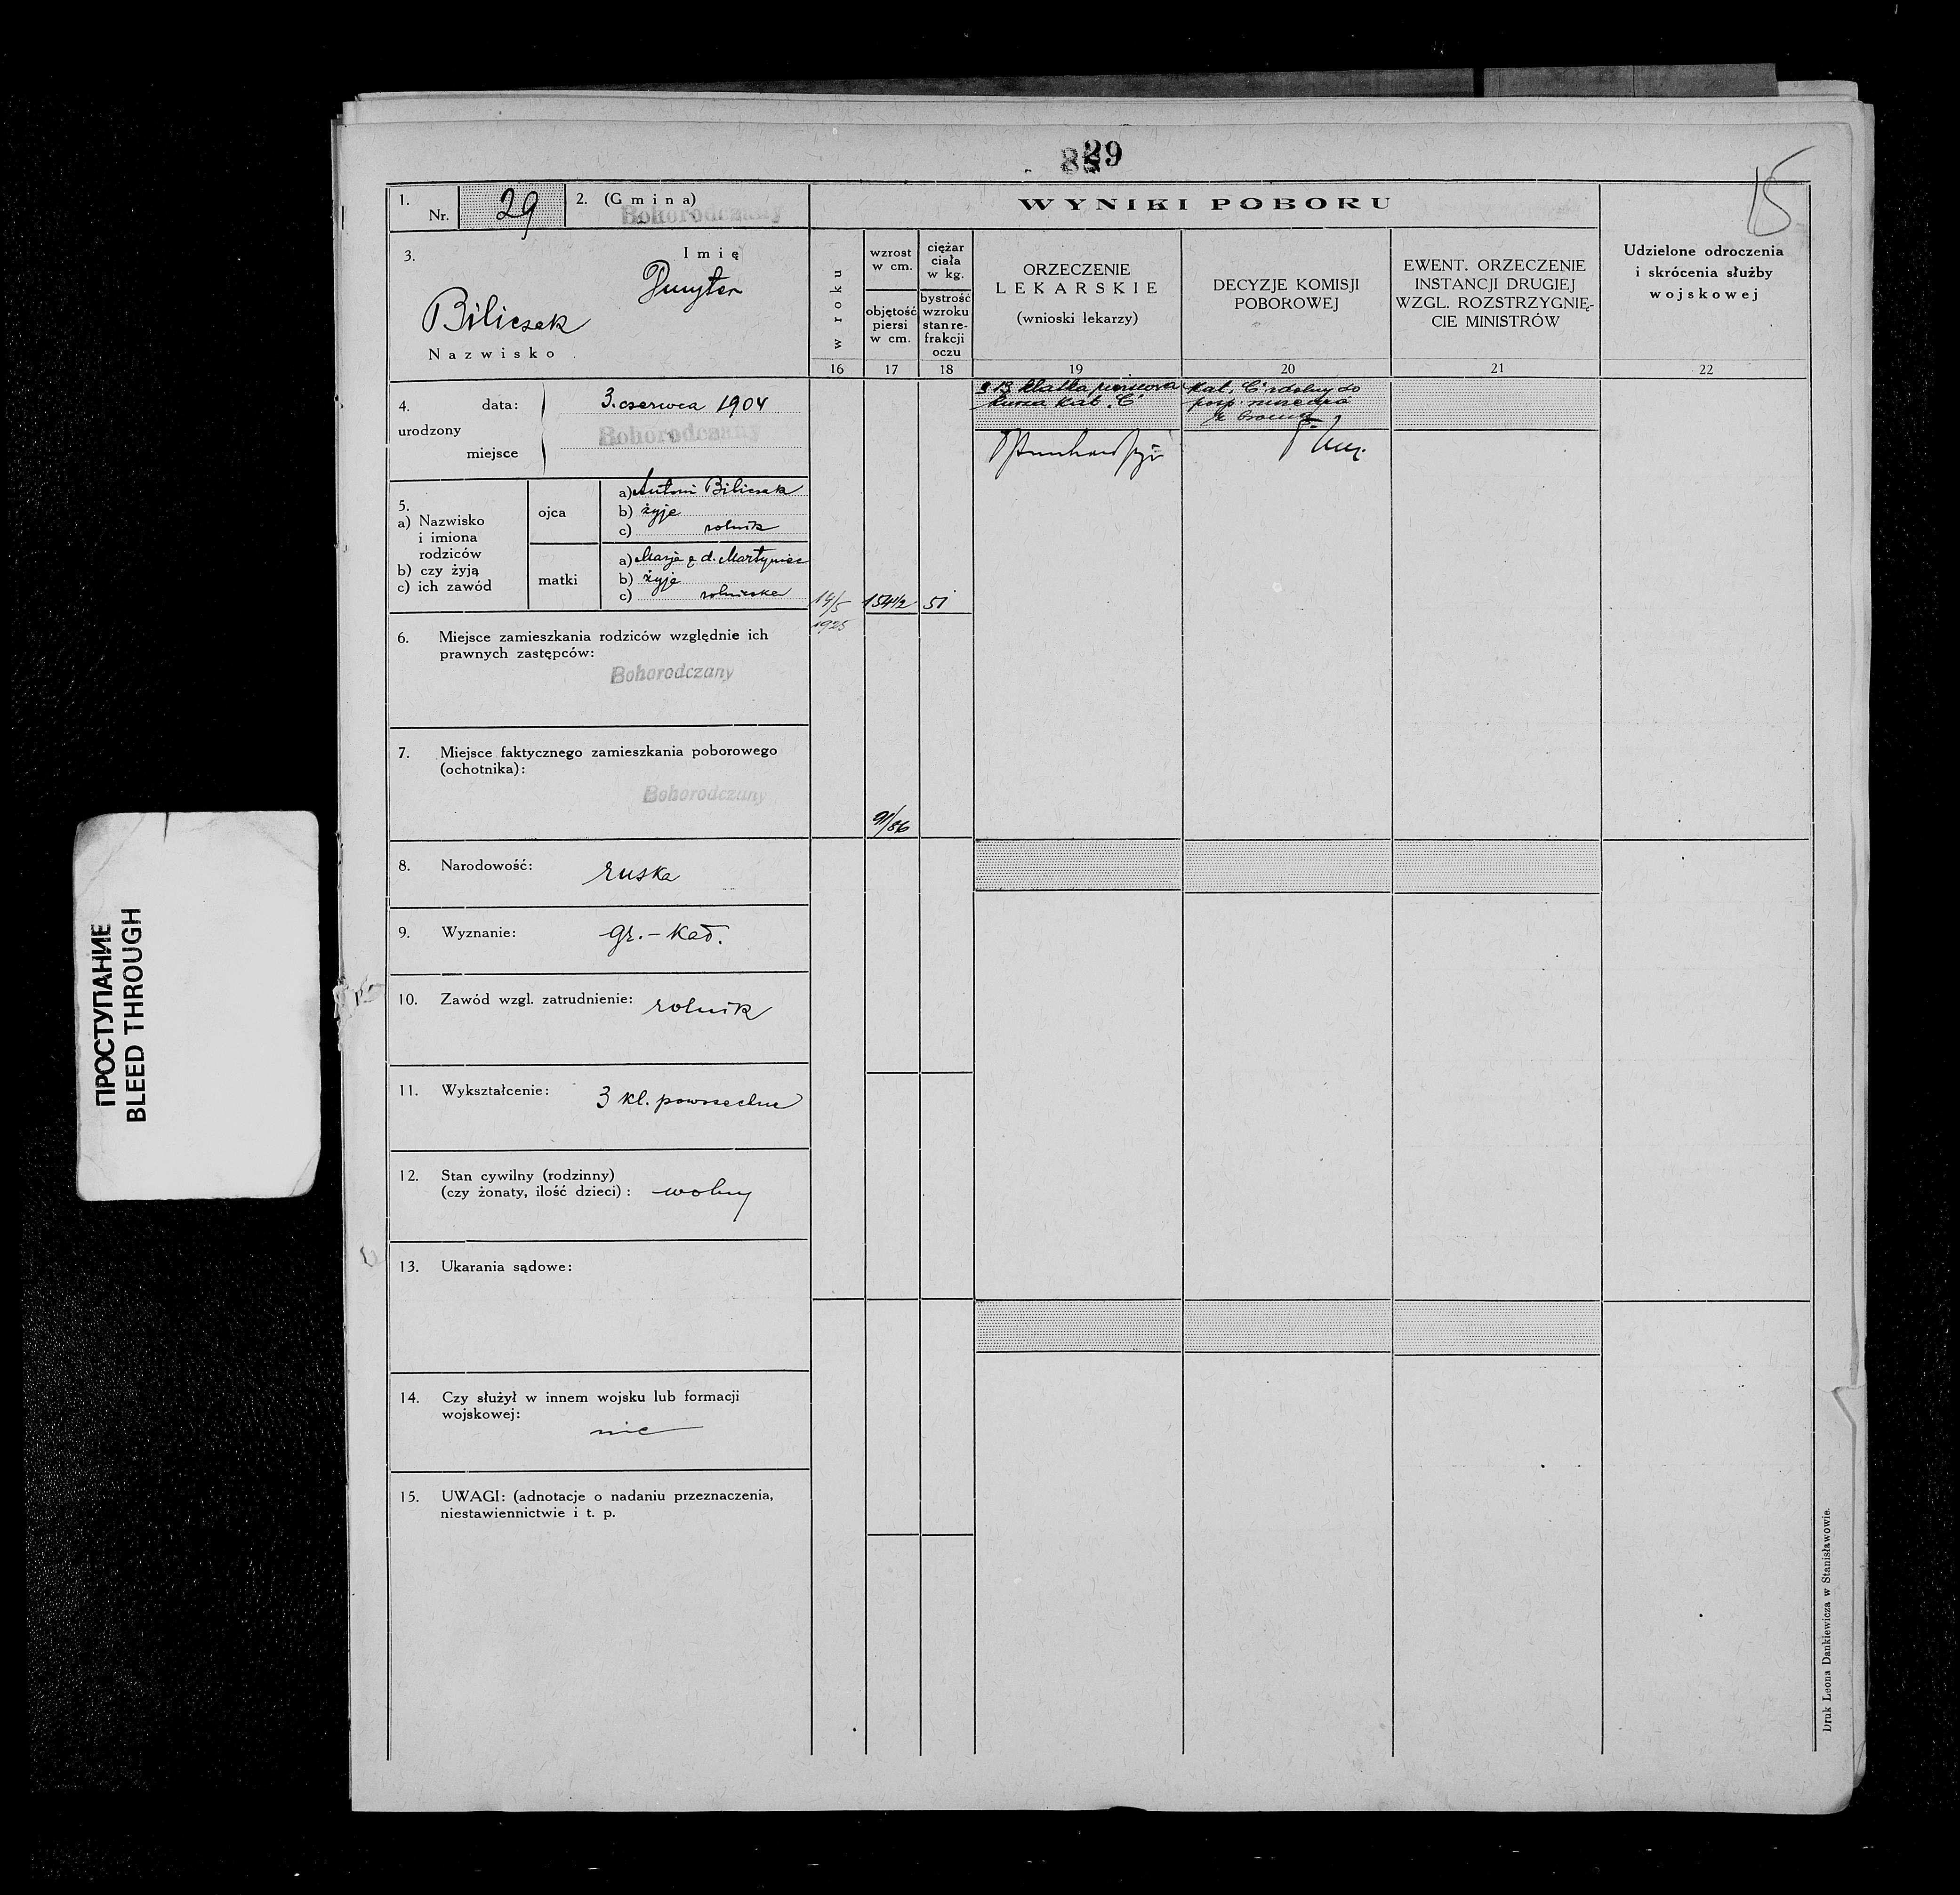 29
15
1.
Nr. 29
2. (Gmina)
Bohorodczany
WYNIKI POBORU
3.
Imię
Dmyter
Biliczak
Nazwisko
w roku
wzrost
w cm.
objętość
piersi
w cm.
ciężar
ciała
w kg.
bystrość
wzroku
stan re-
frakcji
oczu
ORZECZENIE
LEKARSKIE
(wnioski lekarzy)
DECYZJE KOMISJI
POBOROWEJ
EWENT. ORZECZENIE
INSTANCJI DRUGIEJ
WZGL. ROZSTRZYGNIĘ-
CIE MINISTRÓW
Udzielone odroczenia
i skrócenia służby
wojskowej
16 17 18 19 20 21 22
4.
urodzony
data: 3. czerwca 1904
miejsce Bohorodczany
klatka piersiowa
kat. "C"
kat. "C" zdolny do
posp. ruszenia
z bronią
5.
a) Nazwisko
i imiona
rodziców
b) czy żyją
c) ich zawód
ojca
a) Antoni Biliczak
b) żyje
c) rolnik
matki
a) Marja z d. Martyniec
b) żyje
c) rolniczka
14/5
1925
154 1/2
51
6. Miejsce zamieszkania rodziców względnie ich
prawnych zastępców:
Bohorodczany
7. Miejsce faktycznego zamieszkania poborowego
(ochotnika):
Bohorodczany
91/86
8. Narodowość: ruska
9. Wyznanie: gr.-kat.
10. Zawód wzgl. zatrudnienie: rolnik
11. Wykształcenie: 3 kl. powszechne
12. Stan cywilny (rodzinny)
(czy żonaty, ilość dzieci): wolny
13. Ukarania sądowe:
14. Czy służył w innem wojsku lub formacji
wojskowej:
nie
15. UWAGI: (adnotacje o nadaniu przeznaczenia,
niestawiennictwie i t. p.
Druk Leona Dankiewicza w Stanisławowie.
ПРОСТУПАНИЕ
BLEED THROUGH